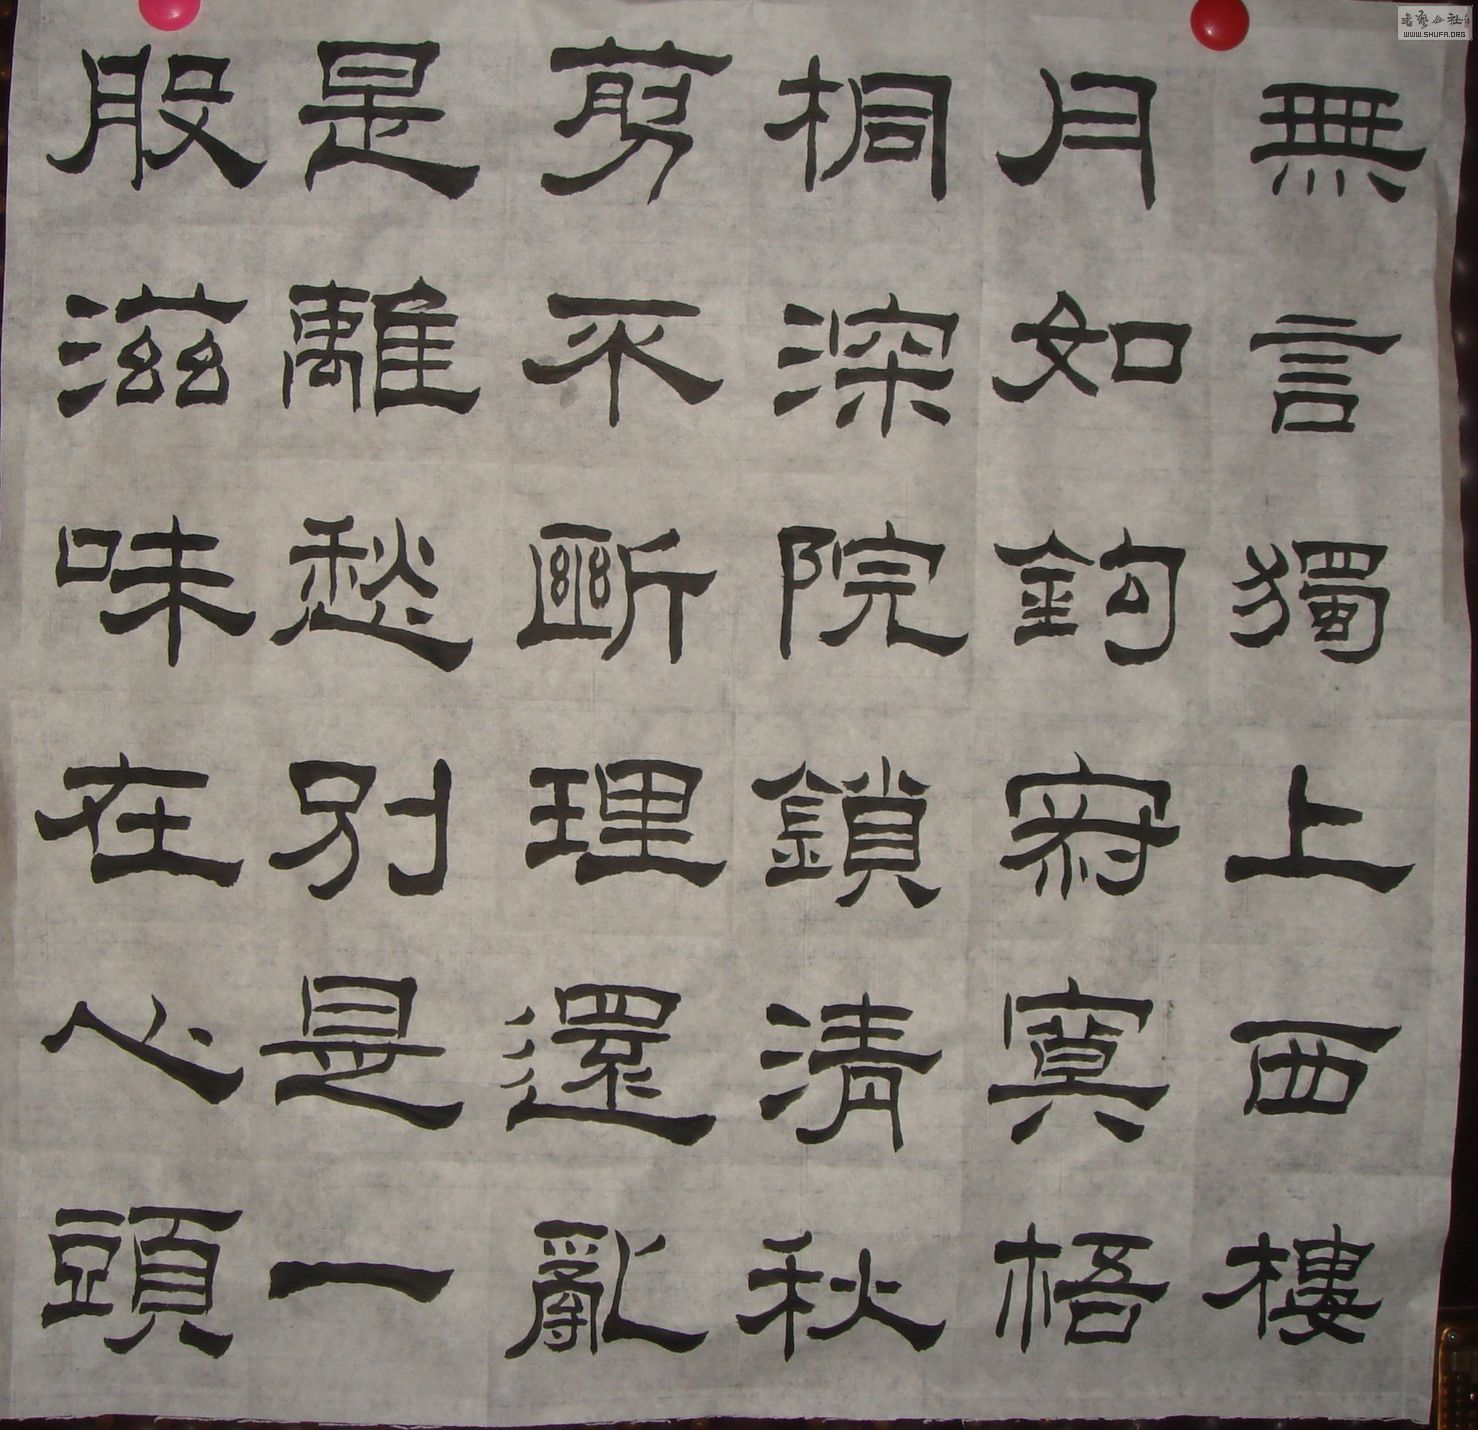 無言獨上西樓
月如鉤寂寞梧
桐深院鎖清秋
剪不斷理還亂
是離愁別是一
股滋味在心頭
WWW.SHUFA.ORG